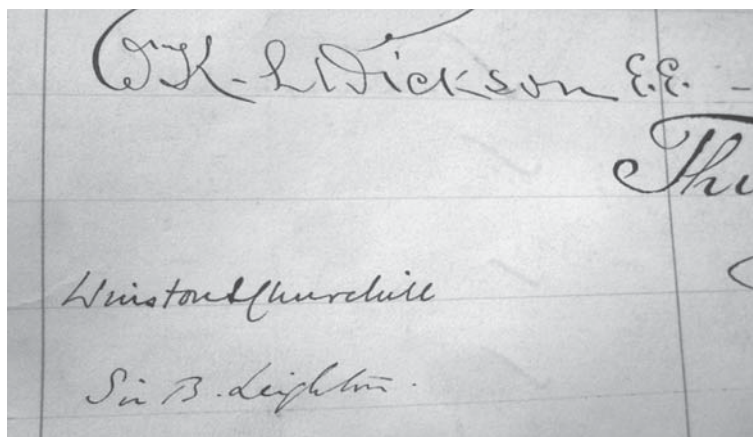 Wm K-L Dickson E.E. –
Thu
Winston S Churchill
Sir B. Leighton.